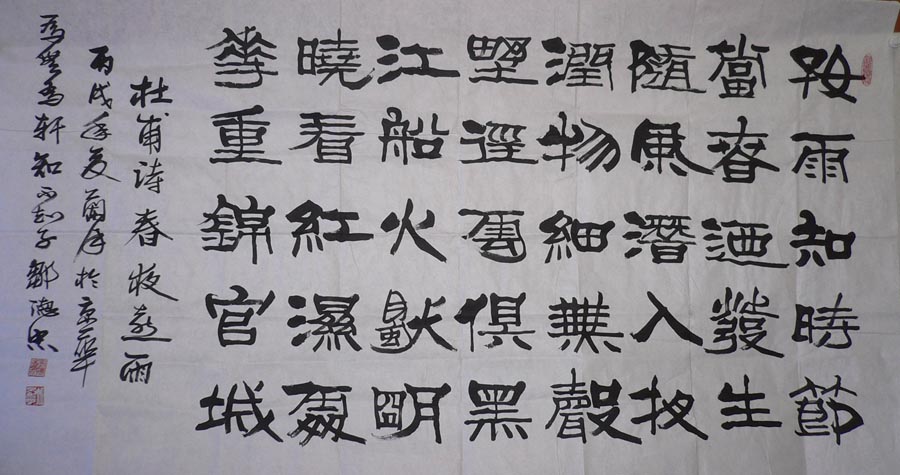 好雨知時節
當春迺發生
隨風潛入夜
潤物細無聲
野徑雲俱黑
江船火獨明
曉看紅濕處
華重錦官城
杜甫诗春夜喜雨
丙戌年夏蘭月於京華
为無为轩知不知子鄒德忠